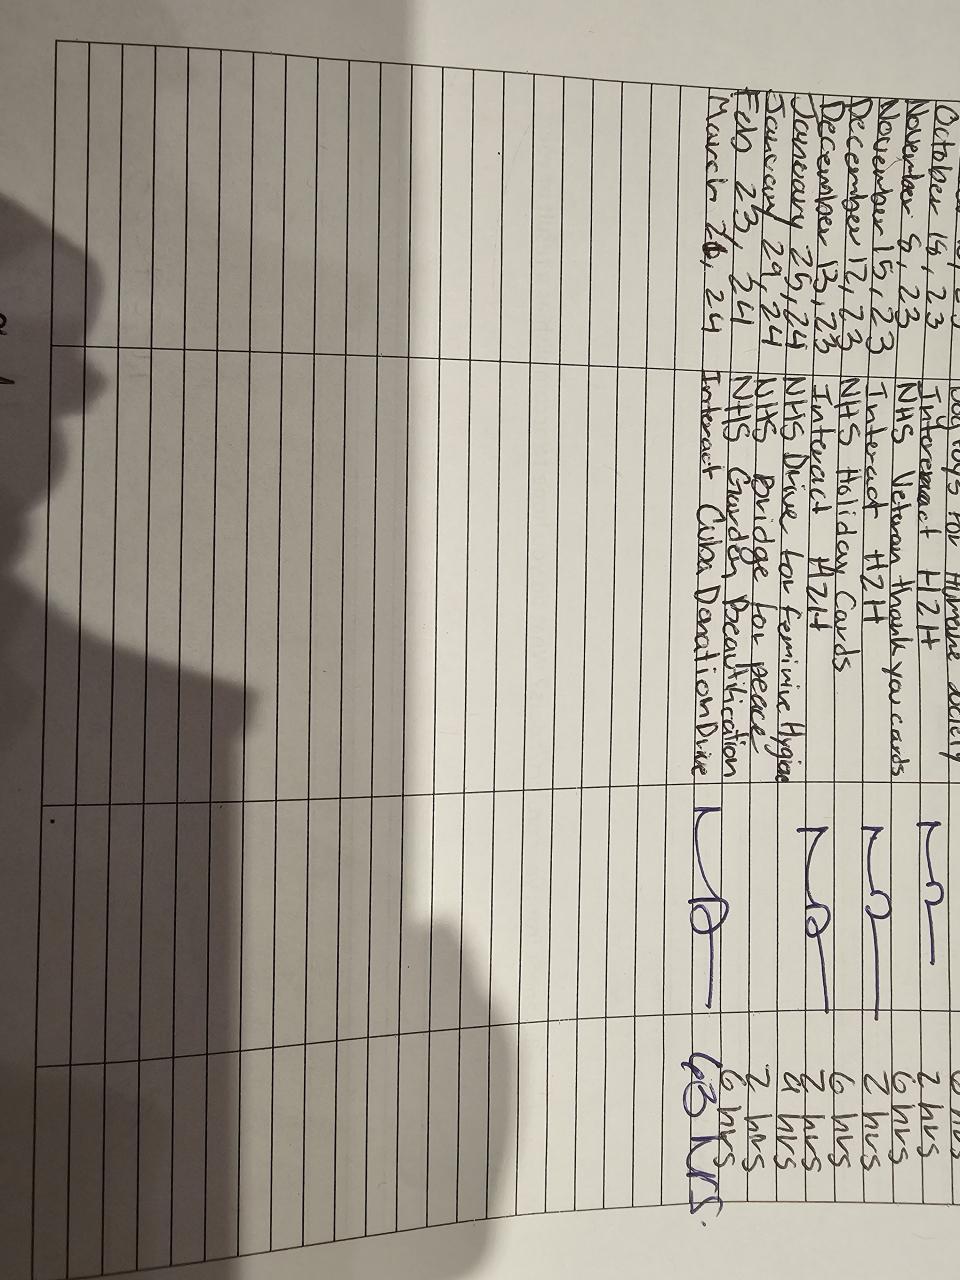 Dog Toys for Humane Society
October 18, 23 Interact H2H 2 hrs
November 8, 23 NHS Veteran thank you cards 6 hrs
November 15, 23 Interact H2H 2 hrs
December 12, 23 NHS Holiday Cards 6 hrs
December 13, 23 Interact H2H 2 hrs
January 25, 24 NHS Drive for Feminine Hygine hrs
January 29, 24 NHS Bridge for peace 2 hrs
Feb 23, 24 NHS Garden Beautification 6 hrs
March 20, 24 Interact Cuba Donation Drive 63 hrs.